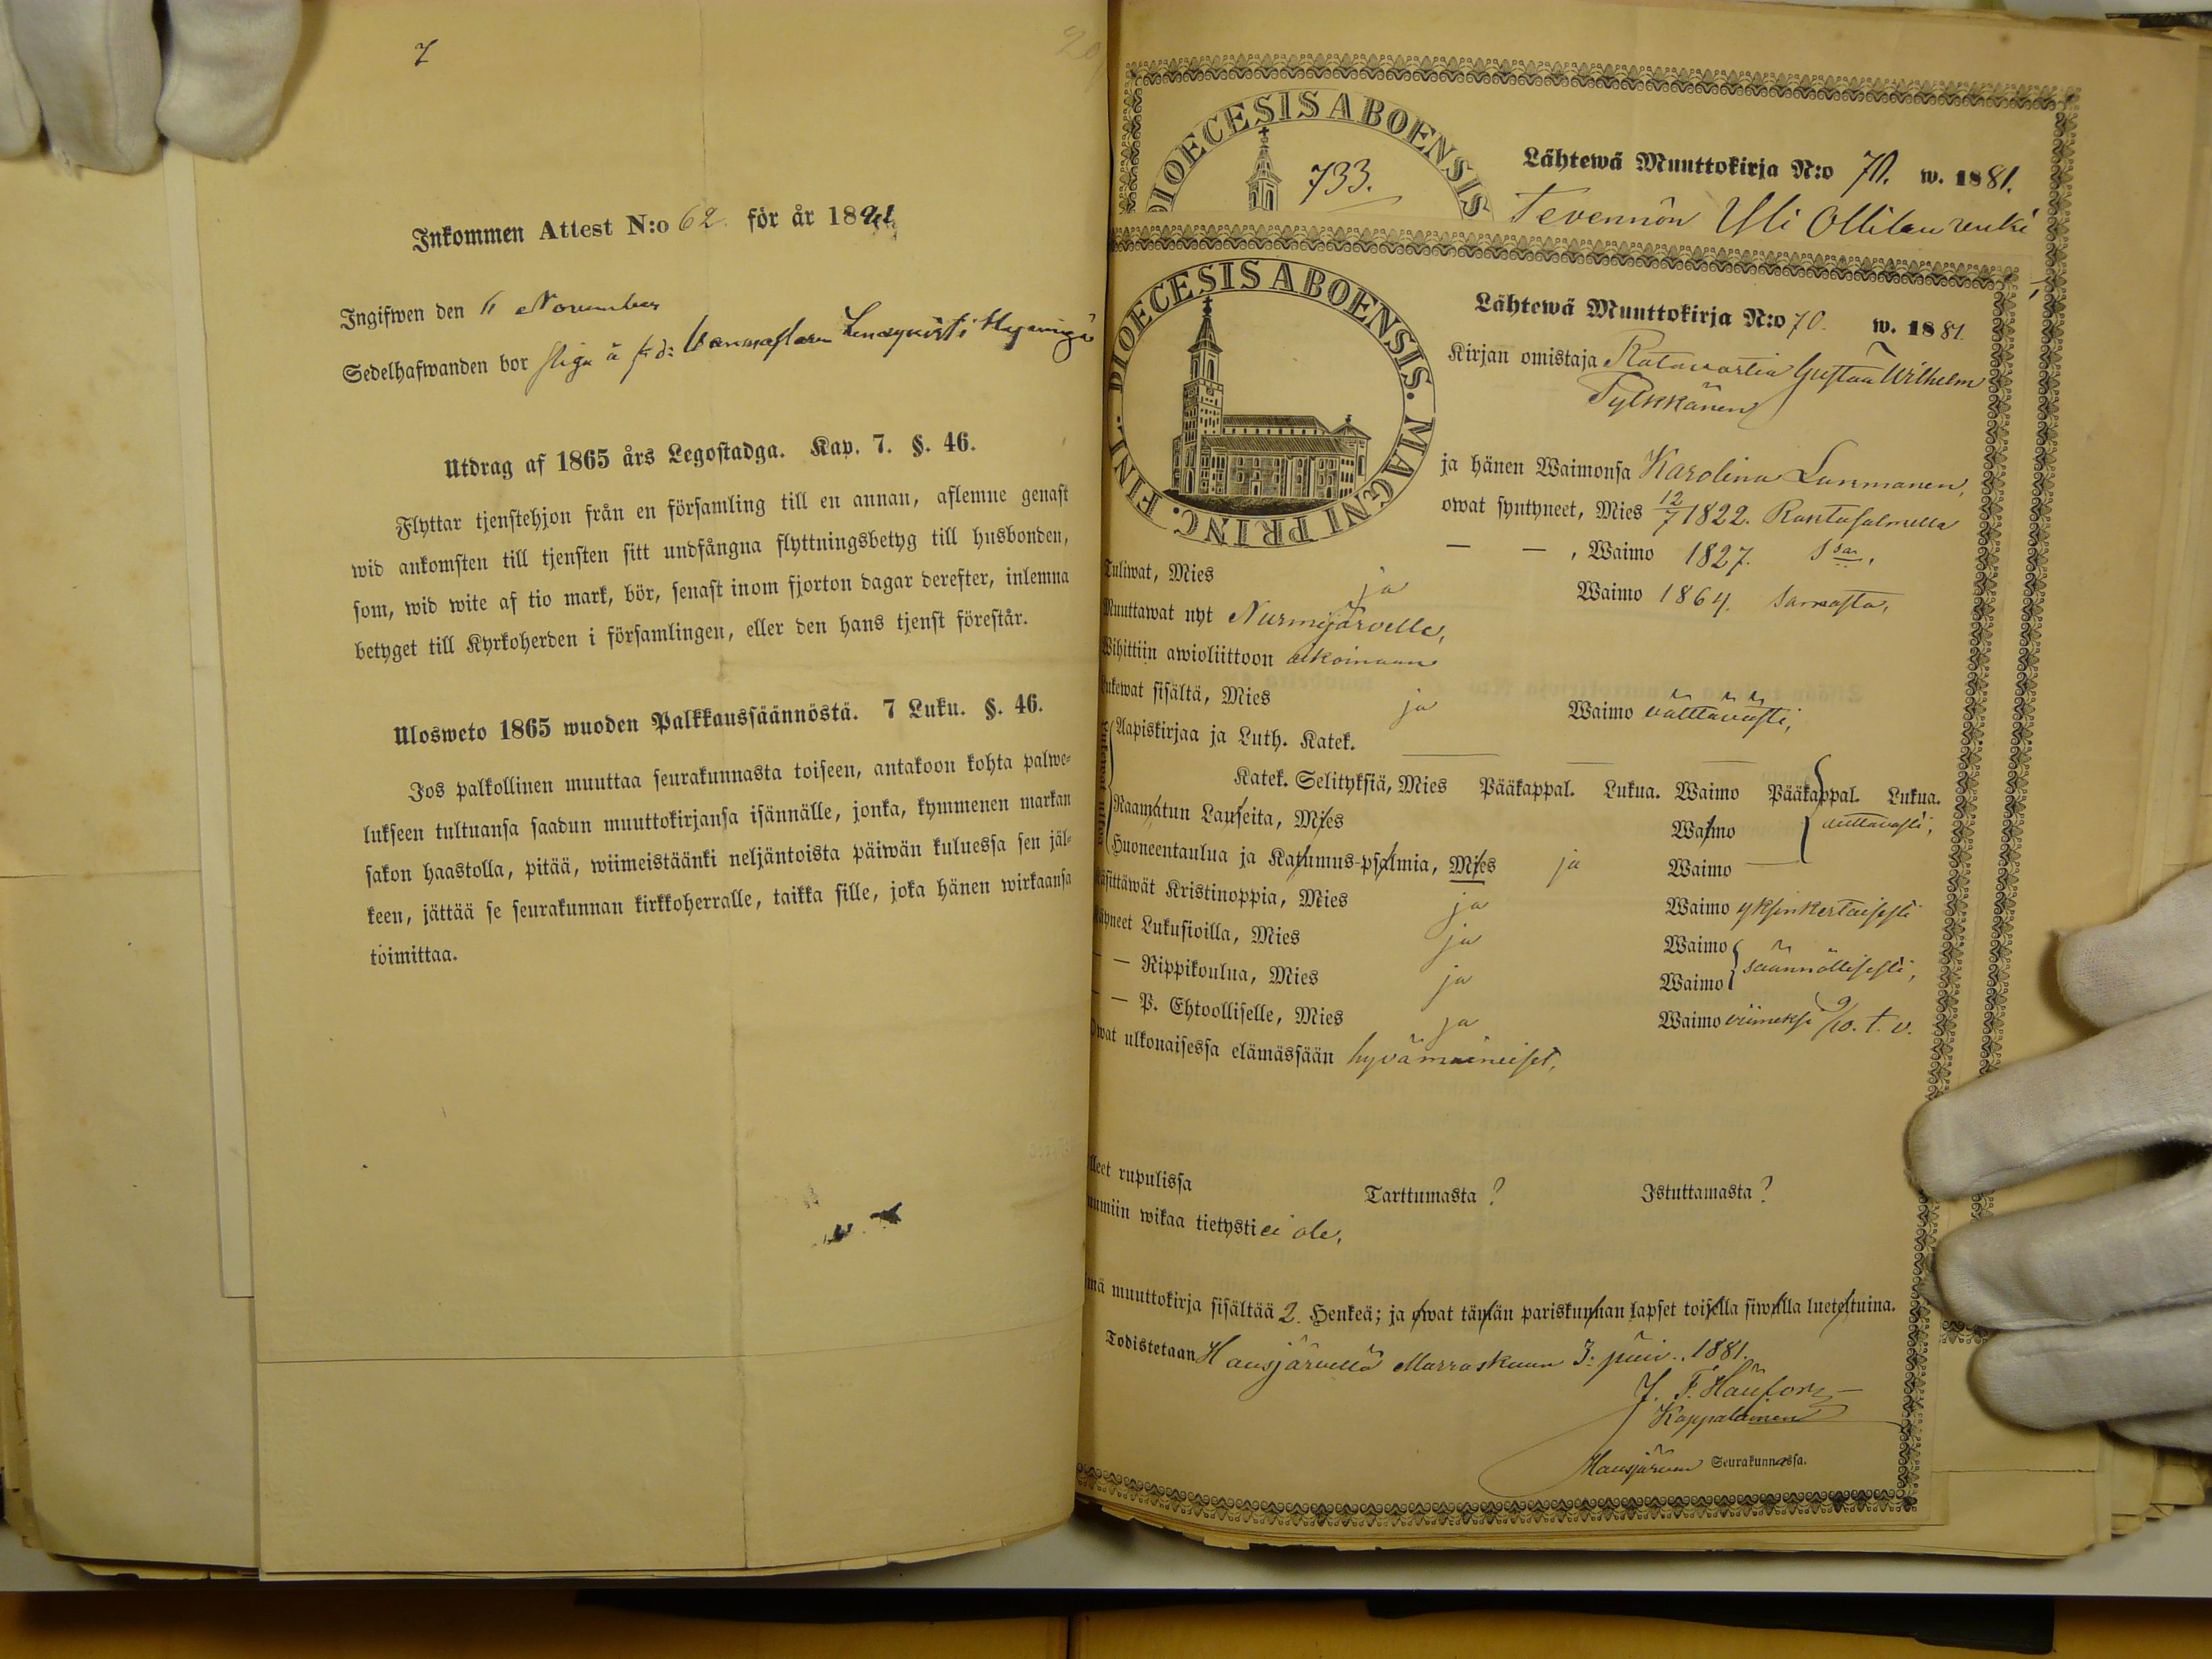 7
Inkommen Attest N:o 62. för år 1881
Ingifwen den 11 November
Sedelhafwanden bor
Utdrag af 1865 års Legostadga. Kap. 7. §. 46.
Flyttar tjenstehjon från en församling till en annan, aflemne genast
wid ankomsten till tjensten sitt undfångna flyttningsbetyg till husbonden,
som, wid wite af tio mark, bör, senast inom fjorton dagar derefter, inlemna
betyget till Kyrkoherden i församlingen, eller den hans tjenst förestår.
Ulosweto 1865 wuoden Palkkaussäännöstä. 7 Luku. §. 46.
Jos palkollinen muuttaa seurakunnasta toiseen, antakoon kohta palwe-
lukseen tultuansa saadun muuttokirjansa isännälle, jonka, kymmenen markan
sakon haastolla, pitää, wiimeistäänki neljäntoista päiwän kuluessa sen jäl-
keen, jättää se seurakunnan kirkkoherralle, taikka sille, joka hänen wirkaansa
toimittaa.
DIOECESIS ABOENSIS
733.
Lähtewä Muuttokirja N:o 70. w. 1881.
Tevennön Yli Ollilan renki
DIOECESIS ABOENSIS. MAGNI PRINC. FINL.
Lähtewä Muuttokirja N:o 70. w. 1881.
Kirjan omistaja Ratavartia Gustaa Wilhelm
Pylkkänen
ja hänen Waimonsa Karolina
owat syntyneet, Mies 12/7 1822. Rantasalmella
— — , Waimo 1827. S sa.
Tuliwat, Mies ja Waimo 1864. samasta,
Muuttawat nyt Nurmijärvelle,
Wihittiin awioliittoon aikoinaan
Lukewat sisältä, Mies ja Waimo välttävästi,
Aapiskirjaa ja Luth. Katek.
Katek. Selityksiä, Mies Pääkappal. Lukua. Waimo Pääkappal. Lukua.
Raamatun Lauseita, Mies Waimo auttavasti,
Huoneentaulua ja Katumus-psalmia, Mies ja Waimo
Käsittäwät Kristinoppia, Mies ja Waimo yksinkertaisesti
Käyneet Lukusioilla, Mies ja Waimo säännöllisesti,
— — Rippikoulua, Mies ja Waimo
— — P. Ehtoolliselle, Mies ja Waimo viimeksi 9/10. t. v.
Owat ulkonaisessa elämässään hyvämaineiset,
lleet rupulissa Tarttumasta ? Istuttamasta ?
uumiin wikaa tietysti ei ole,
mä muuttokirja sisältää 2. Henkeä; ja owat tämän pariskunnan lapset toisella siwulla lueteltuina.
Todistetaan Hausjärvellä Marraskuun 3: päiv. 1881.
Kappalainen
Hausjärven Seurakunnassa.